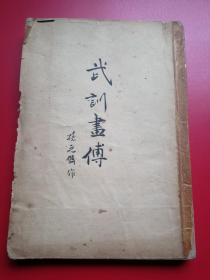 武訓畫傳
孫之儁作